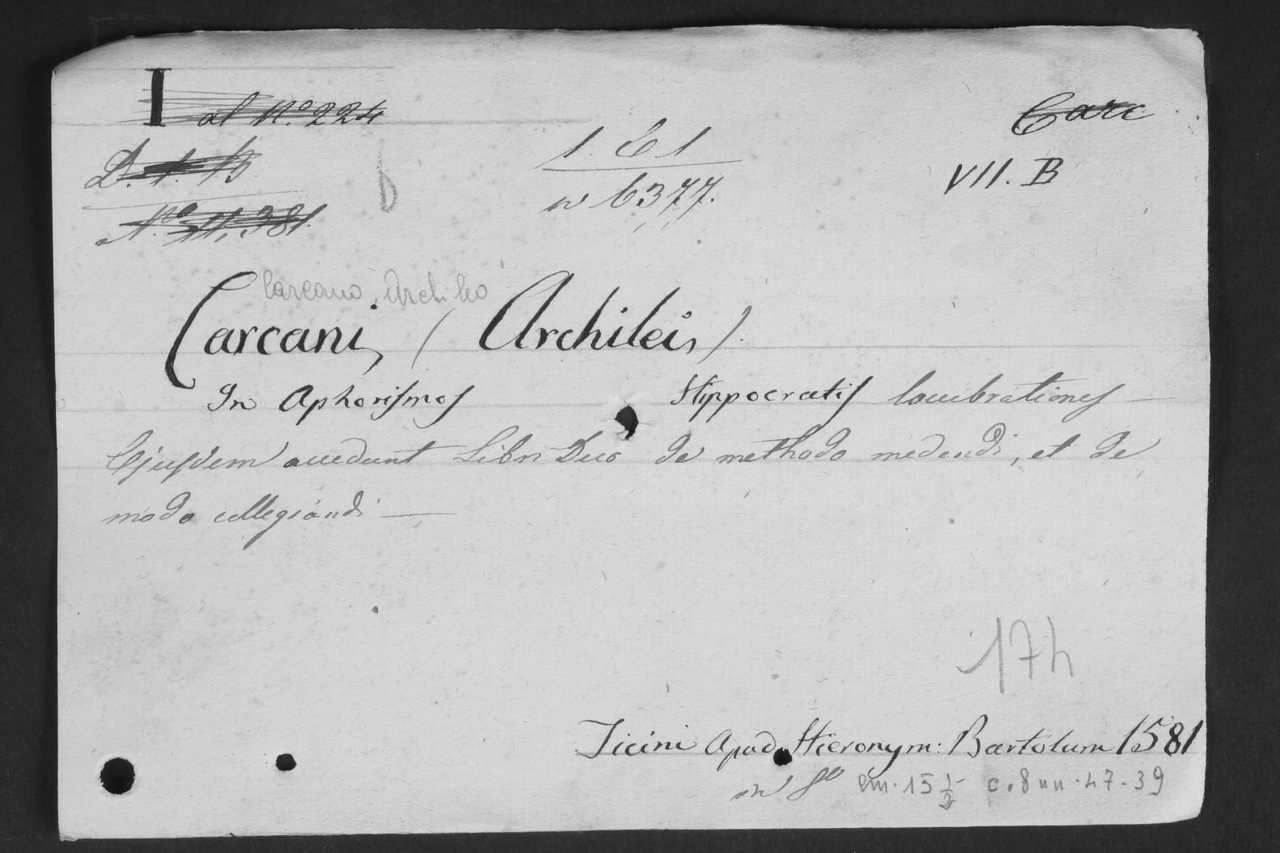 I al N.º 224
Carc
D. 1. 13.
b
1. C 1
VII. B
N.º 11,381.
n 6377.
Carcano, Archileo
Carcani, (Archilei,)
In Aphorismos Hippocratis lucubrationes —
Ejusdem accedunt Libri Duo de methodo medendi, et de
modo collegiandi —
17h
Ticini Apud Hieronym: Bartolum 1581
in 8º cm. 15 ½ c. 8 nn. 47-39